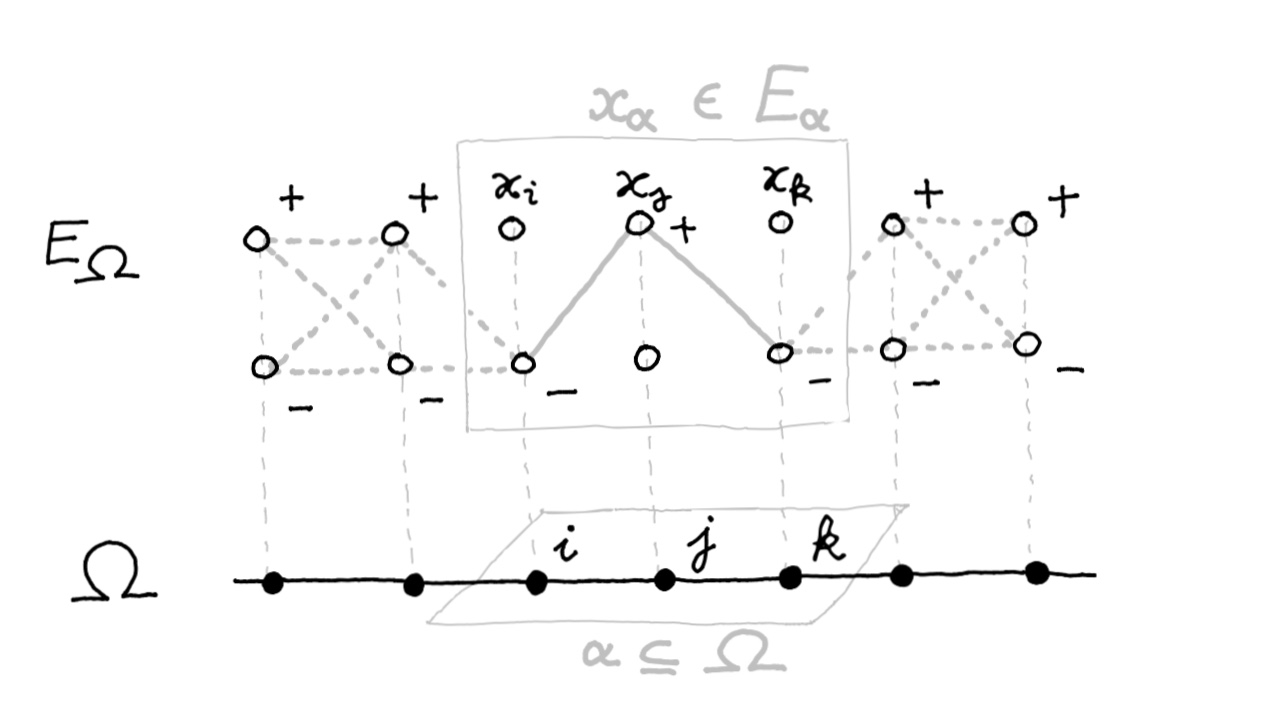 x_α ∈ E_α
x_i x_j x_k
+ + + + +
E_Ω
− − − − − −
i j k
Ω
α ⊆ Ω